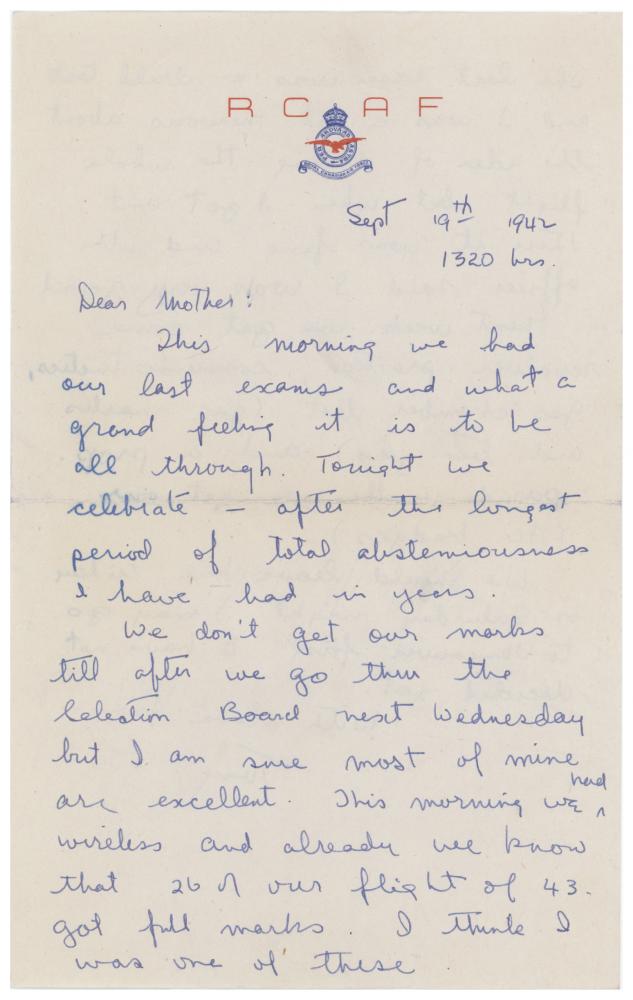 R C A F
PER ARDUA AD ASTRA
ROYAL CANADIAN AIR FORCE
Sept 19th 1942
1320 hrs.
Dear Mother:
This morning we had
our last exams and what a
grand feeling it is to be
all through. Tonight we
celebrate – after the longest
period of total abstemiousness
I have had in years.
We don't get our marks
till after we go thru the
Selection Board next Wednesday
but I am sure most of mine
are excellent. This morning we had
wireless and already we know
that 26 of our flight of 43
got full marks. I think I
was one of these